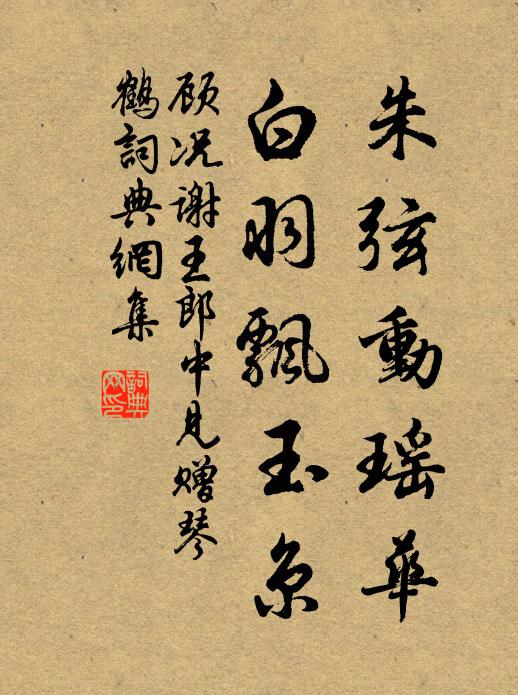 朱弦動瑶華
白羽飄玉京
顾况谢王郎中見赠琴
鶴詞典網集
詞典网印